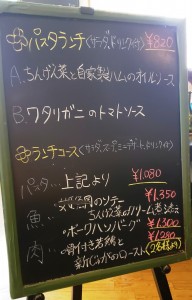 パスタランチ(サラダ、ドリンク付) ¥820
A.ちんげん菜と自家製ハムのオイルソース
B.ワタリガニのトマトソース
ランチコース(サラダ、スープ、ミニデザート、ドリンク付)
パスタ…上記より ¥1,080
魚…のソテー ¥1,350
ちんげん菜のクリームソース
肉…ポークハンバーグ ¥1,300
骨付き若鶏と ¥1,280
新じゃがのロースト(2名様より)